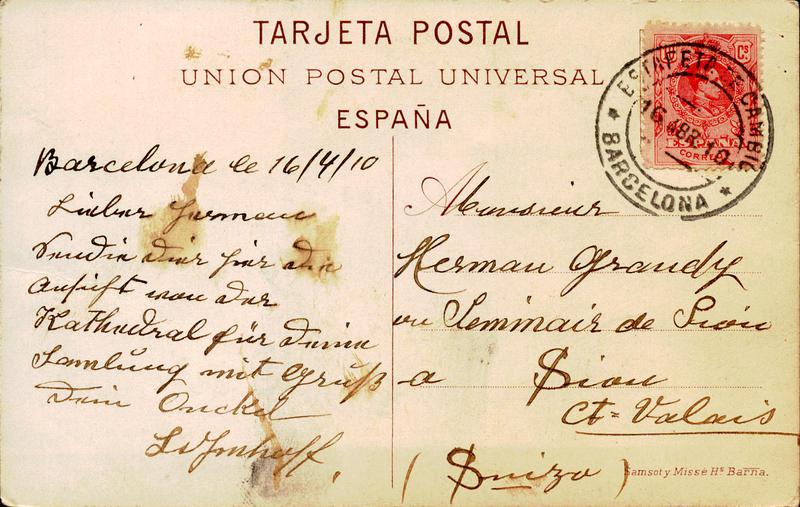 TARJETA POSTAL
UNION POSTAL UNIVERSAL
ESPAÑA
Cs
ESPAÑA
CORREOS
ESTAFETA DE CAMBIO
16 ABR 10
BARCELONA
Barcelona le 16/4/10
Lieber Herman
Sendie dier hier die
Ansift von der
Kathedral für deine
Samlüng mit Grüß
dein Onckel
Monsieur
Herman Grandy
au Seminair de Sion
a Sion
Ct = Valais
(Suiza)
Samsot y Missé Hs Barna.